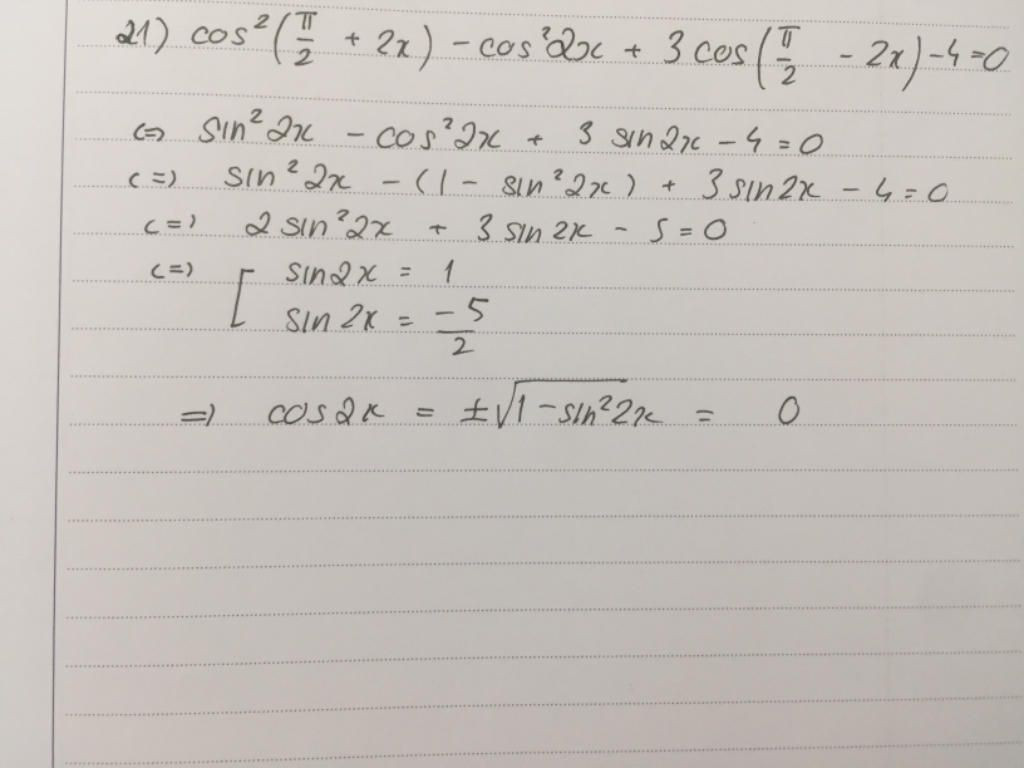 21) cos²(π/2 + 2x) - cos²2x + 3 cos(π/2 - 2x) - 4 = 0
<=> sin²2x - cos²2x + 3 sin2x - 4 = 0
<=> sin²2x - (1 - sin²2x) + 3 sin2x - 4 = 0
<=> 2 sin²2x + 3 sin2x - 5 = 0
<=> [ sin2x = 1
sin2x = -5/2
=> cos2x = ±√(1 - sin²2x) = 0